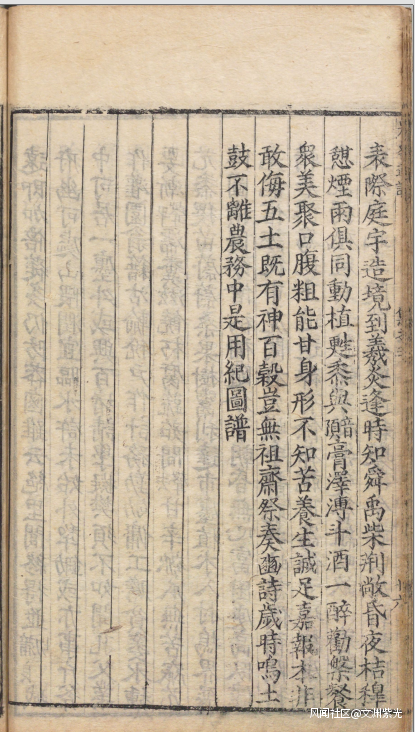 表際庭宇造境到羲炎逢時知舜禹柴荊敞昏夜桔槔
憇煙雨俱同動植甦忝與膏澤溥斗酒一醉勸槃餐
衆美聚口腹粗能甘身形不知苦養生誠足嘉報本非
敢侮五土既有神百穀豈無祖齋祭奏豳詩歲時鳴土
鼓不離農務中是用紀圖譜
风闻社区@文渊紫光